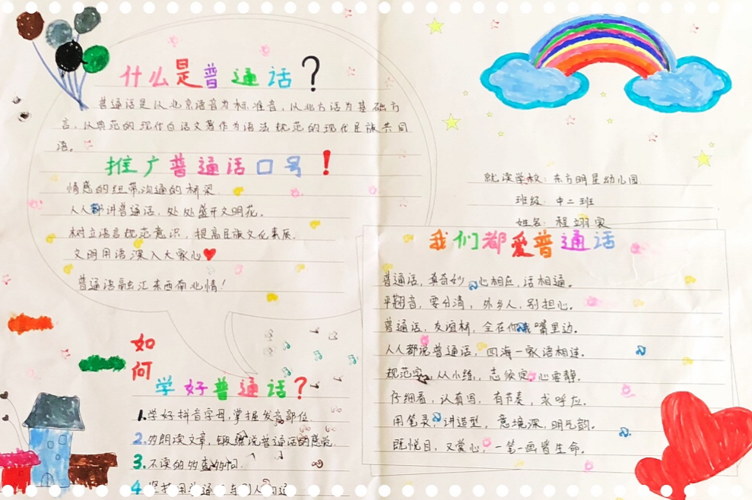 什么是普通话？
普通话是以北京语音为标准音，以北方话为基础方
言，以典范的现代白话文著作为语法规范的现代民族共同
语。
推广普通话口号！
情感的纽带沟通的桥梁
人人都讲普通话，处处盛开文明花。
树立语言规范意识，提高民族文化素质。
文明用语深入大家心
普通话融汇东西南北情！
如何
学好普通话？
1.学好拼音字母，掌握发音部位
2.勿朗读文章，锻炼说普通话的感觉
3.不读的勿查
4.坚持用普通话与别人沟通
就读学校：东方明星幼儿园
班级 中二班
姓名：程翊家
我们都爱普通话
普通话，真奇妙，心相应，话相通。
平翘音，要分清，外乡人，别担心。
普通话，友谊桥，全在你我嘴里边。
人人都说普通话，四海一家语相连。
规范字，从小练，志欲定，心要静。
仔细看，认有因，有节奏，求呼应。
用笔灵，讲造型，意境深，明气韵。
既悦目，又爱心，一笔一画皆生命。